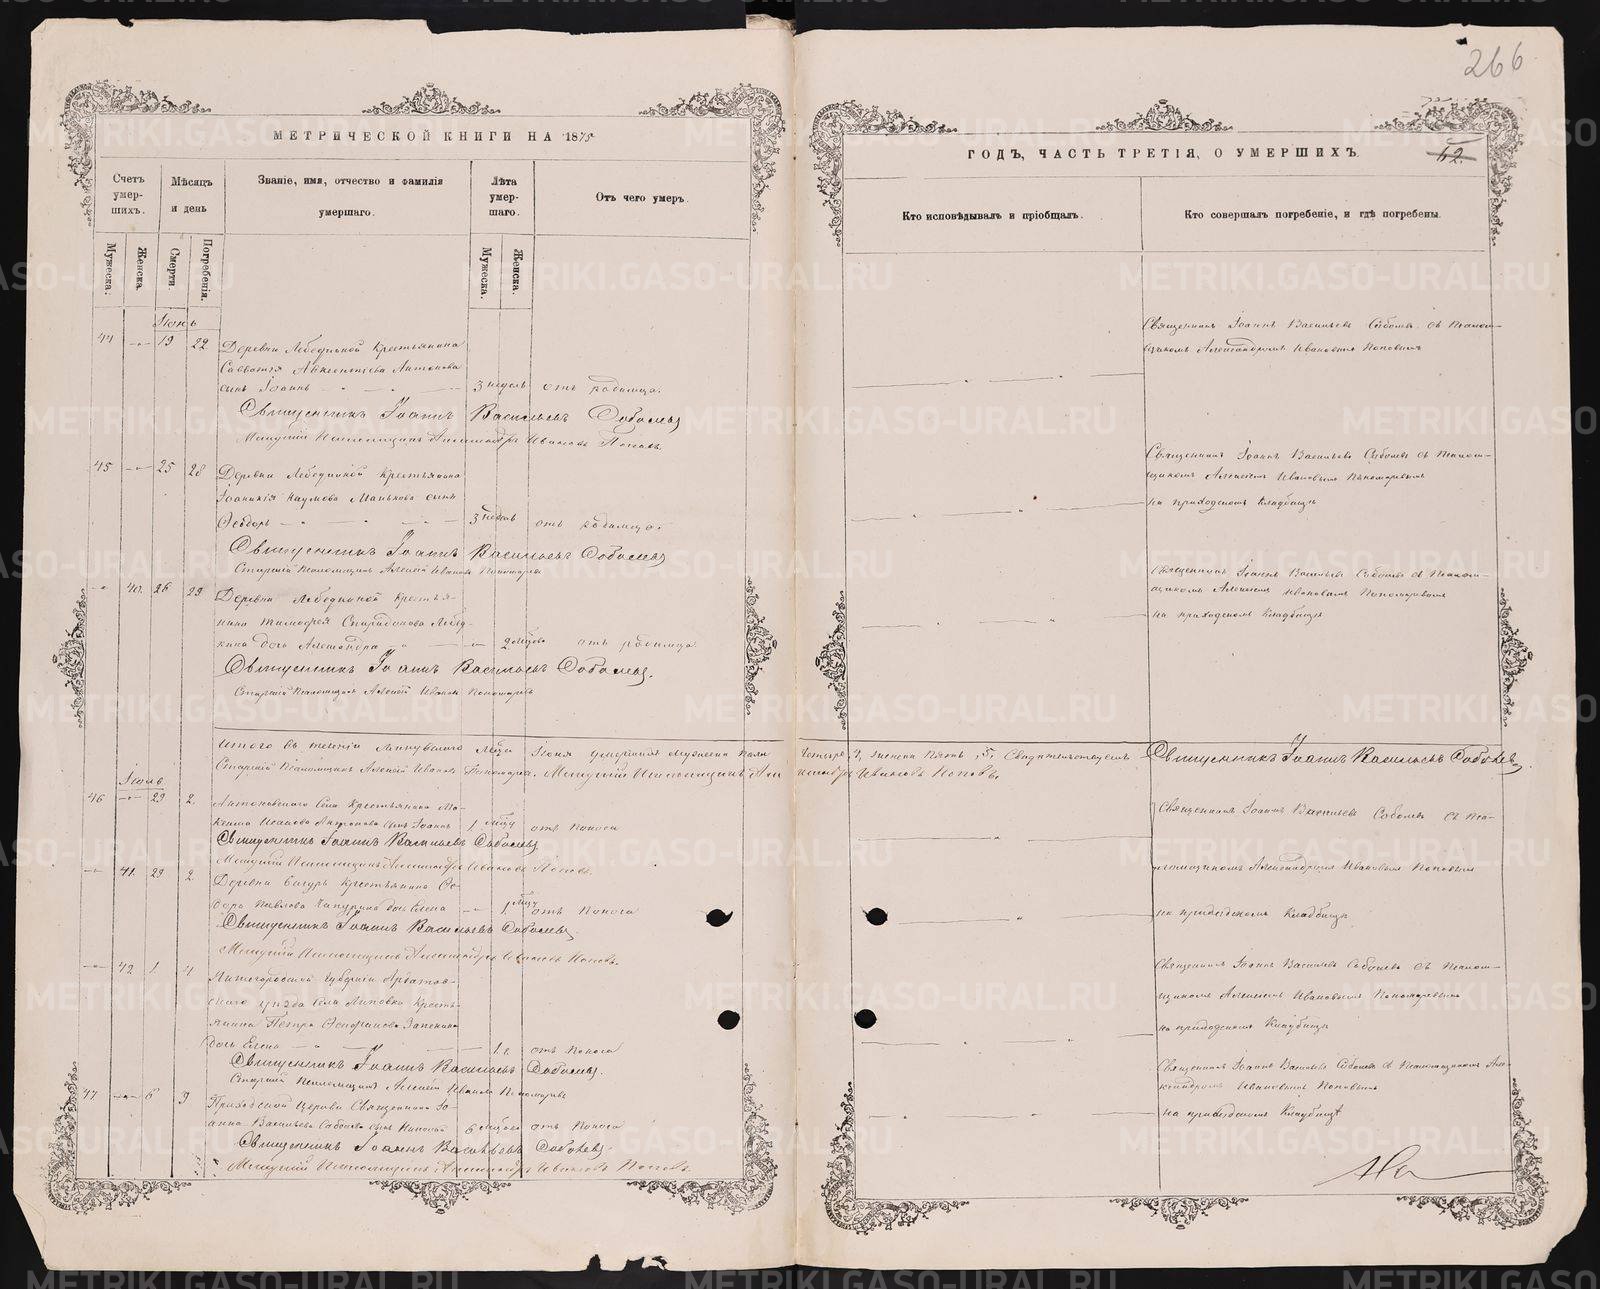 266
МЕТРИЧЕСКОЙ КНИГИ НА 1875
ГОДЪ, ЧАСТЬ ТРЕТІЯ, О УМЕРШИХЪ.
42.
Счетъ умер-шихъ.
Мѣсяцъ и день
Званіе, имя, отчество и фамилія умершаго.
Лѣта умер-шаго.
Отъ чего умеръ.
Кто исповѣдывалъ и пріобщалъ.
Кто совершалъ погребеніе, и гдѣ погребены.
Мужеска.
Женска.
Смерти.
Погребенія.
Мужеска.
Женска.
Іюнь
44 19 22 Деревни Лебедкиной крестьянина
Антонова
сынъ Іоаннъ 3 недель отъ родимца.
Священникъ Іоаннъ Васильевъ Соболевъ
Младшій Псаломщикъ Александръ Ивановъ Поповъ.
Священникъ Іоаннъ Васильевъ Соболевъ съ псалом-
щикомъ Александромъ Ивановымъ Поповымъ
45 25 28 Деревни Лебедкиной крестьянина
Іоанникія Наумова Манькова сынъ
Ѳеодоръ 3 недель отъ родимца.
Священникъ Іоаннъ Васильевъ Соболевъ
Старшій Псаломщикъ Алексій Ивановъ Пономаревъ
Священникъ Іоаннъ Васильевъ Соболевъ съ псалом-
щикомъ Алексіемъ Ивановымъ Пономаревымъ
на приходскомъ кладбищѣ
40. 26 29 Деревни Лебедкиной крестья-
нина Тимофея Спиридонова Лебед-
кина дочь Александра 2 мѣсяцовъ отъ родимца
Священникъ Іоаннъ Васильевъ Соболевъ.
Старшій Псаломщикъ Алексій Ивановъ Пономаревъ
Священникъ Іоаннъ Васильевъ Соболевъ съ псалом-
щикомъ Алексіемъ Ивановымъ Пономаревымъ
на приходскомъ кладбищѣ
Итого въ теченіи Іюня умершихъ мужеска пола четыре, 4, женска пять, 5, Свидѣтельствуемъ Священникъ Іоаннъ Васильевъ Соболевъ.
Старшій Псаломщикъ Алексій Ивановъ Пономаревъ. Младшій Псаломщикъ Александръ Ивановъ Поповъ.
Іюль
46 29 2. Антоновскаго села крестьянина
сынъ Іоаннъ 1. мѣсяц отъ поноса
Священникъ Іоаннъ Васильевъ Соболевъ
Младшій Псаломщикъ Александръ Ивановъ Поповъ.
Священникъ Іоаннъ Васильевъ Соболевъ съ пса-
ломщикомъ Александромъ Ивановымъ Поповымъ
41. 29 2. Деревни крестьянина Ѳе-
дора Павлова дочь Елена 1. мѣсяц отъ поноса
Священникъ Іоаннъ Васильевъ Соболевъ.
Младшій Псаломщикъ Александръ Ивановъ Поповъ.
на приходскомъ кладбищѣ
42 1. 4 Нижегородской губерніи Арзамов-
скаго уѣзда села Липовки кресть-
янина Петра
дочь Елена 1. г. отъ поноса
Священникъ Іоаннъ Васильевъ Соболевъ.
Старшій Псаломщикъ Алексій Ивановъ Пономаревъ
Священникъ Іоаннъ Васильевъ Соболевъ съ псалом-
щикомъ Алексіемъ Ивановымъ Пономаревымъ
на приходскомъ кладбищѣ
47 6 9 Приходской церкви Священника Іо-
анна Васильева Соболева сынъ 6 мѣсяцовъ отъ поноса
Священникъ Іоаннъ Васильевъ Соболевъ.
Младшій Псаломщикъ Александръ Ивановъ Поповъ.
Священникъ Іоаннъ Васильевъ Соболевъ съ псаломщикомъ Але-
ксандромъ Ивановымъ Поповымъ
на приходскомъ кладбищѣ
METRIKI.GASO-URAL.RU